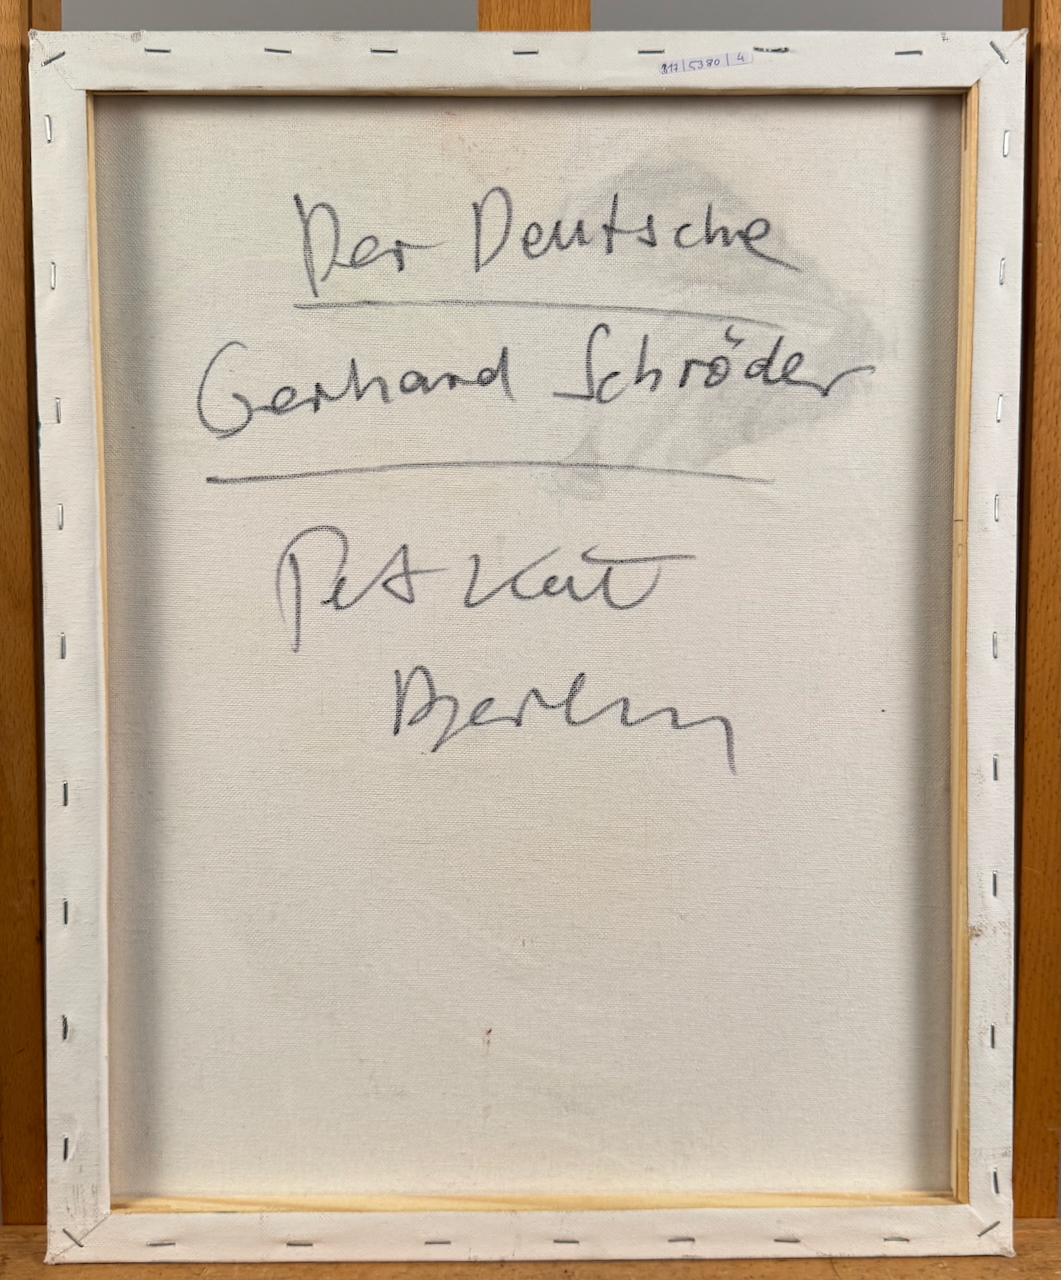 317/5380/4
Der Deutsche
Gerhard Schröder
Berlin